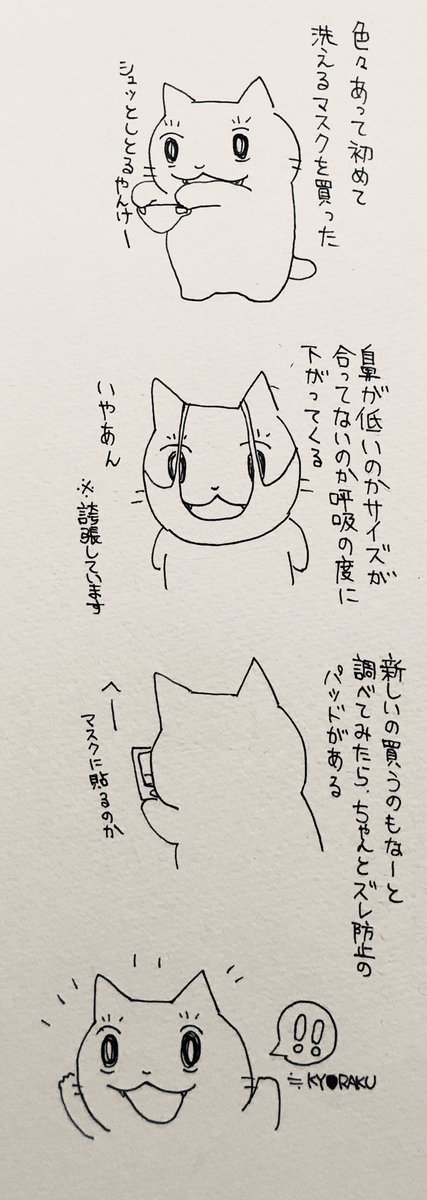 色々あって初めて
洗えるマスクを買った
シュッとしとる
やんけー
鼻が低いのかサイズが
合ってないのか呼吸の度に
下がってくる
いやあん
※誇張しています
新しいの買うのもなーと
調べてみたら、ちゃんとズレ防止の
パッドがある
へー
マスクに貼るのか
!!
≒KYORAKU